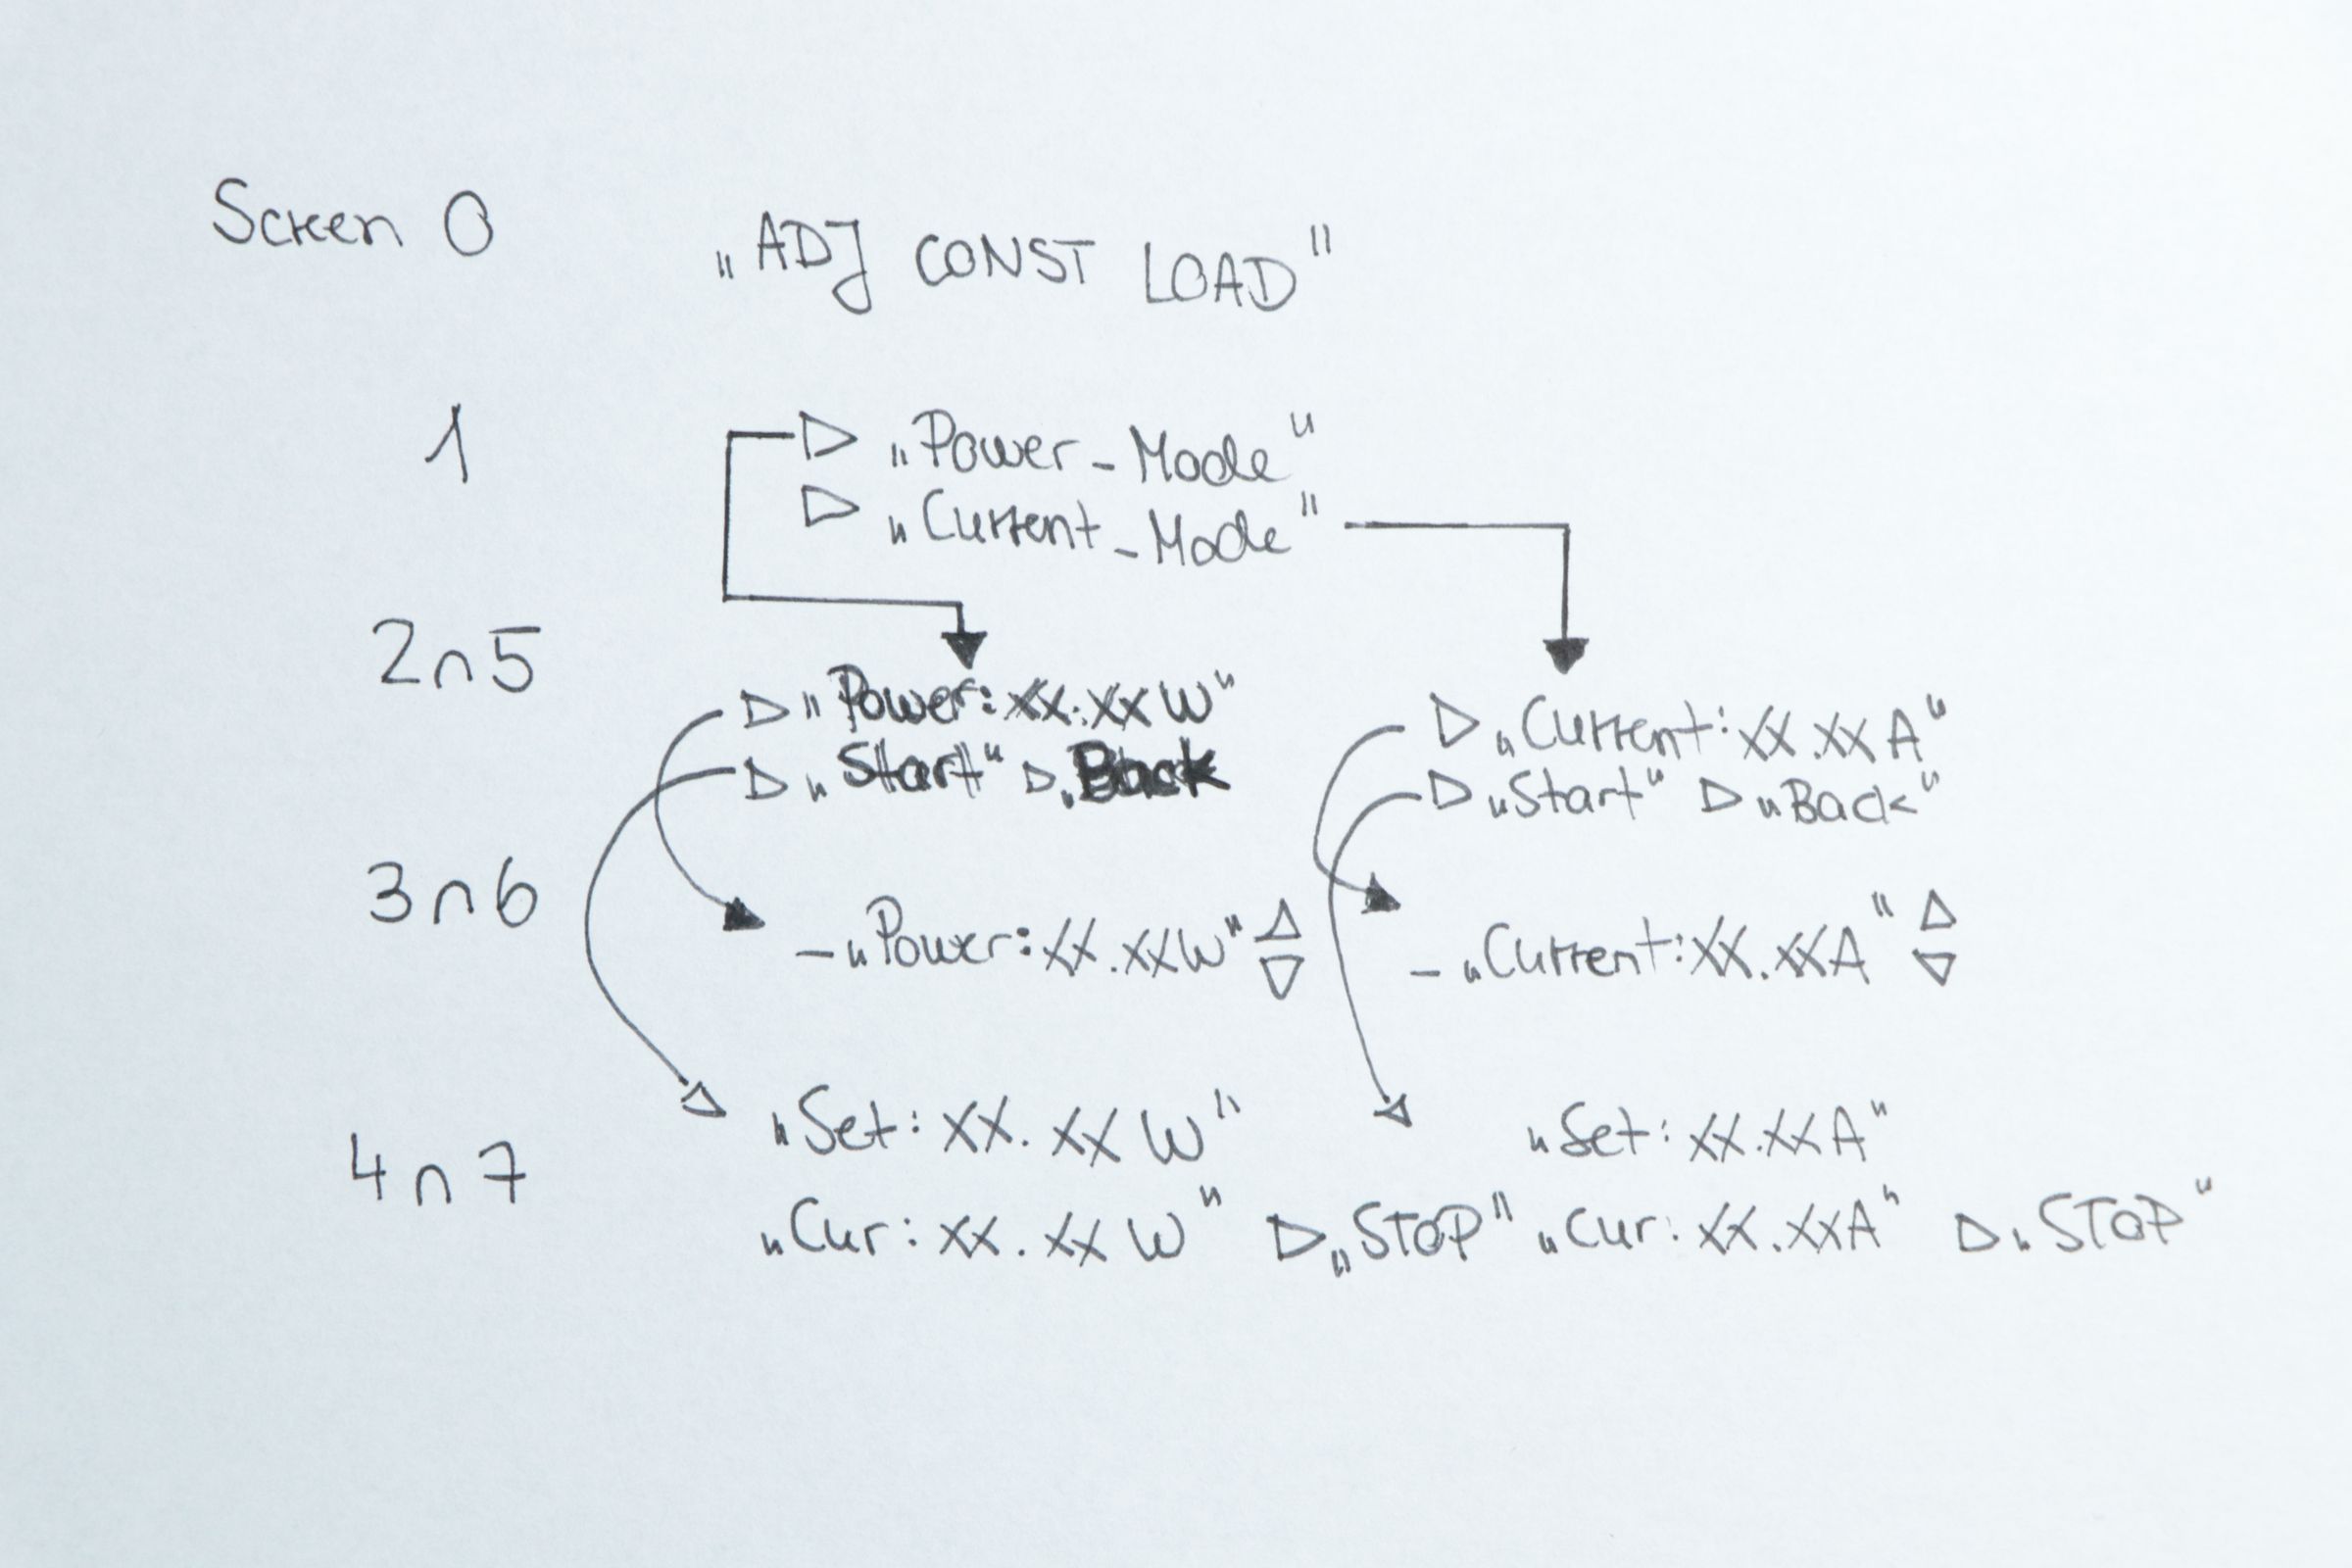 Screen 0 „ADJ CONST LOAD"
1 ▷ „Power_Mode"
▷ „Current_Mode"
2n5 ▷ „Power: XX.XX W" ▷ „Current: XX.XX A"
▷ „Start" ▷ „Back ▷ „Start" ▷ „Back"
3n6 - „Power: XX.XX W" △▽ - „Current: XX.XX A" △▽
4n7 „Set: XX.XX W" „Set: XX.XX A"
„Cur: XX.XX W" ▷ „STOP" „Cur: XX.XX A" ▷ „STOP"